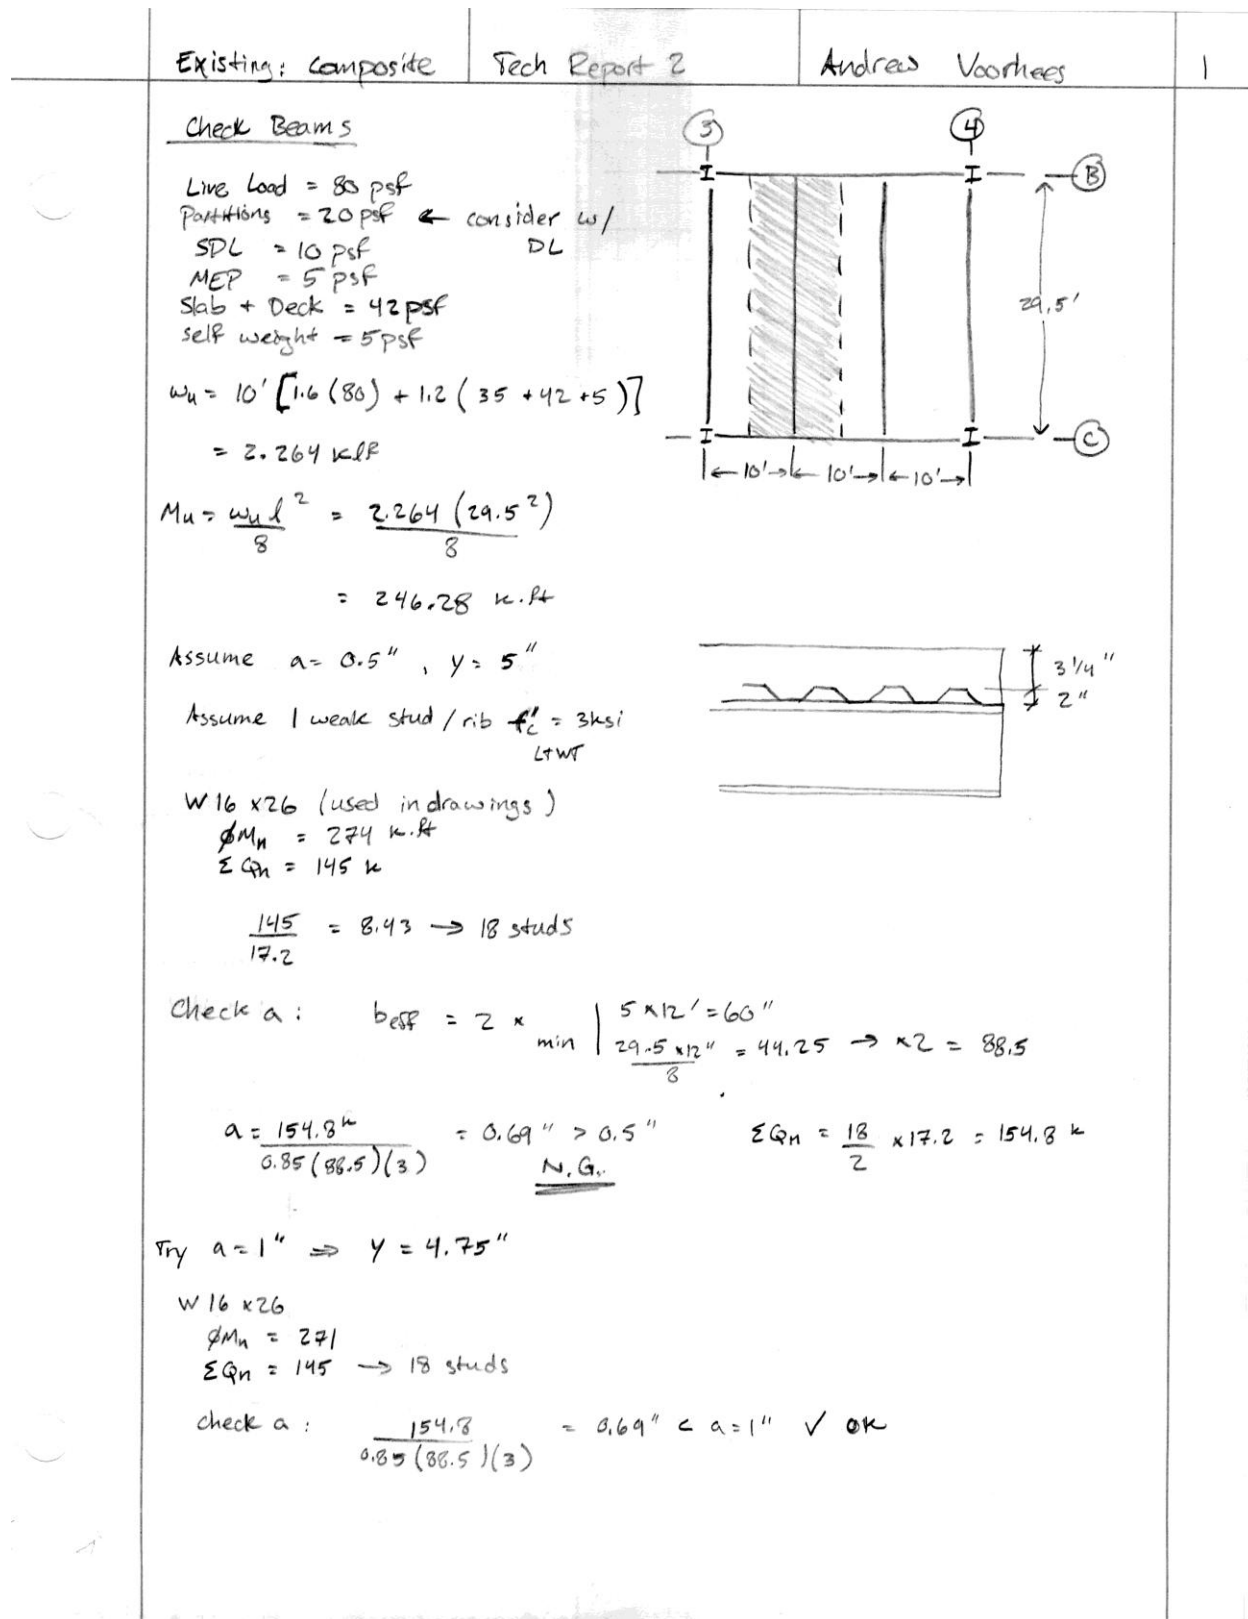 Existing: Composite Tech Report 2 Andrew Voorhees 1
Check Beams
Live Load = 80 psf
Partitions = 20 psf ← consider w/
DL
SDL = 10 psf
MEP = 5 psf
Slab + Deck = 42 psf
self weight = 5 psf
wu = 10' [1.6 (80) + 1.2 ( 35 + 42 + 5 )]
= 2.264 klf
3 4
B
29.5'
C
10' 10' 10'
Mu = wu l² / 8 = 2.264 (29.5²) / 8
= 246.28 k.ft
Assume a = 0.5" , y = 5"
Assume 1 weak stud / rib f'c = 3ksi
LTWT
3 1/4"
2"
W 16 x26 (used in drawings)
ϕMn = 274 k.ft
ΣQn = 145 k
145 / 17.2 = 8.43 → 18 studs
Check a : beff = 2 x min | 5 x12' = 60"
29.5 x12" / 8 = 44.25 → x2 = 88.5
a = 154.8k / 0.85 (88.5)(3) = 0.69" > 0.5" ΣQn = 18/2 x 17.2 = 154.8 k
N.G.
Try a = 1" ⇒ y = 4.75"
W 16 x26
ϕMn = 271
ΣQn = 145 → 18 studs
check a : 154.8 / 0.85 (88.5)(3) = 0.69" < a = 1" ✓ OK